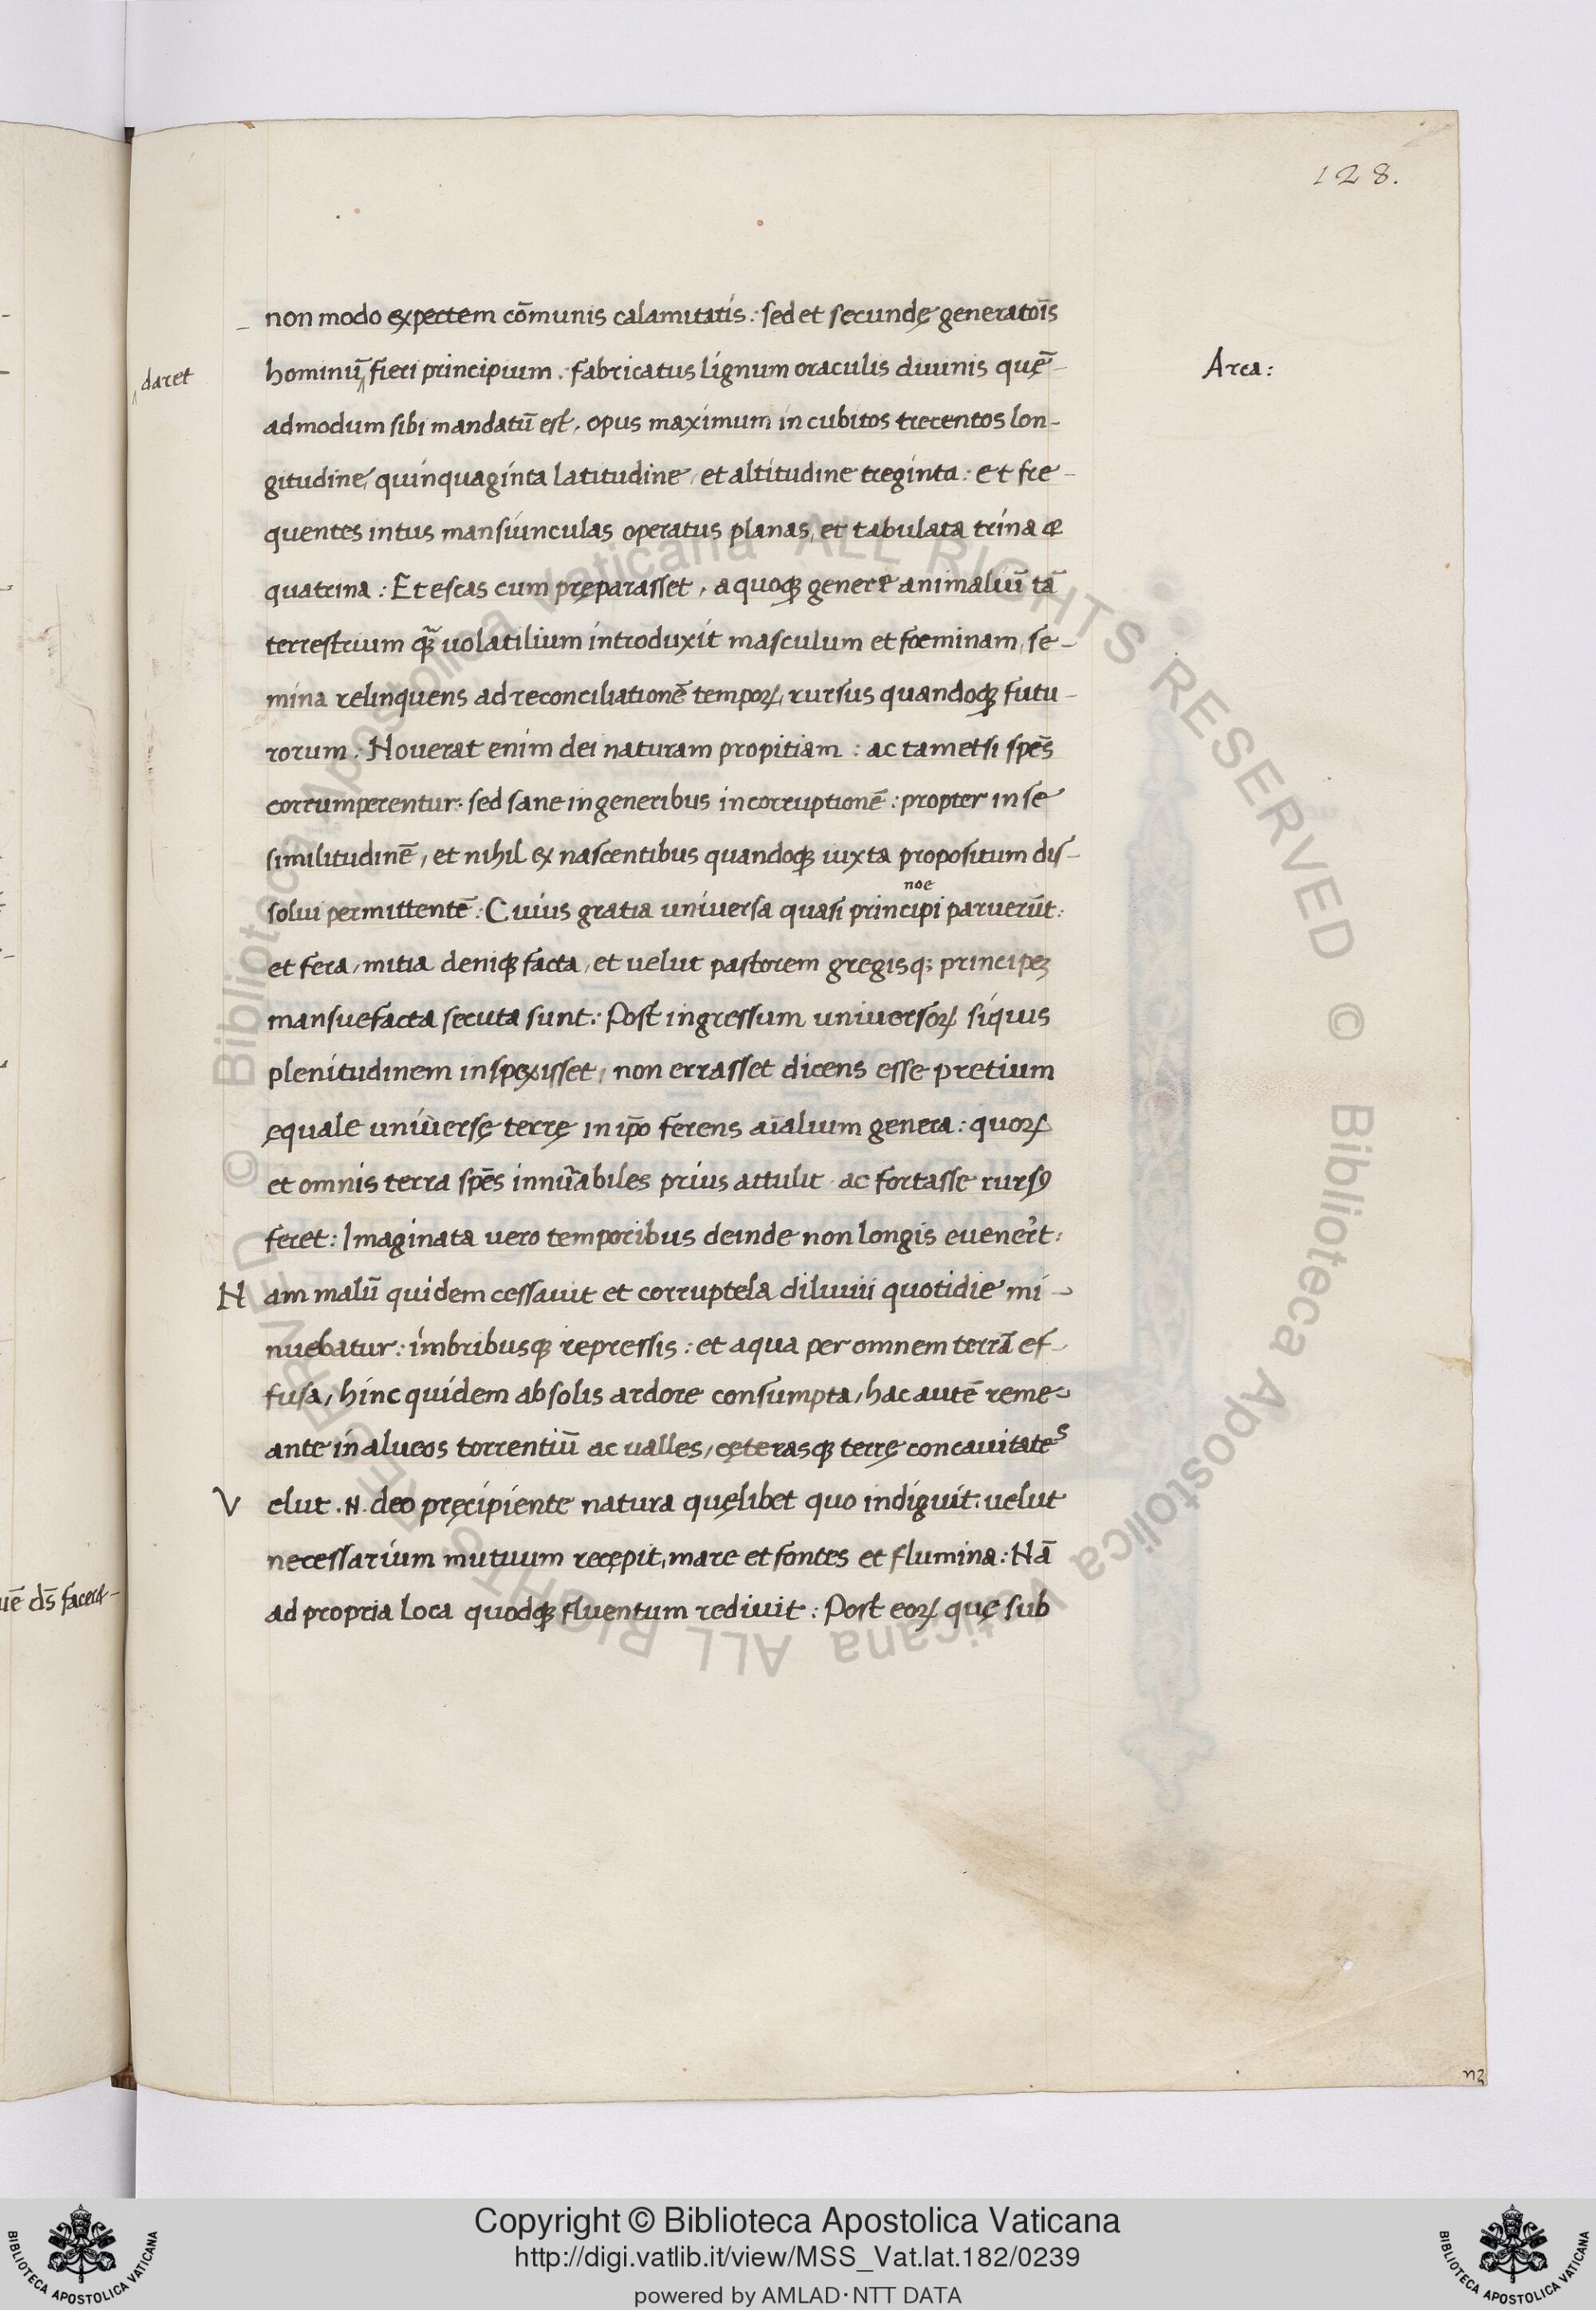 128.
non modo expectem cōmunis calamitatis: sed et secundę generatoīs
daret
hominū fieri principium. fabricatus lignum oraculis diuinis quę̄-
Arca:
admodum sibi mandatū est. opus maximum in cubitos trecentos lon-
gitudine, quinquaginta latitudine, et altitudine treginta: et fre-
quentes intus mansiunculas operatus planas, et tabulata trina &
quatrina: Et escas cum pręparasset, a quoqꝫ genere animaliū tā
terrestrium qꝫ̄ uolatilium introduxit masculum et foeminam, se-
mina relinquens ad reconciliationē temporꝝ, rursus quandoqꝫ futu-
rorum: Nouerat enim dei naturam propitiam: ac tametsi spēs
corrumperentur: sed sane in generibus incorruptionē: propter in se
similitudinē, et nihil ex nascentibus quandoqꝫ iuxta propositum dis-
noe
solui permittentē: Cuius gratia uniuersa quasi principi paruerūt:
et fera, mitia deniqꝫ facta, et uelut pastorem gregisq; principeꝫ
mansuefacta secuta sunt: Post ingressum uniuersoꝝ siquis
plenitudinem inspexisset, non errasset dicens esse pretium
ęquale uniuersę terrę in ip̄o ferens aīalium genera: quoꝝ
et omnis terra spēs innūabiles prius attulit ac fortasse rursꝰ
feret: Imaginata uero temporibus deinde non longis euener̄t:
N am malū quidem cessauit et corruptela diluuii quotidie mi-
nuebatur: imbribusqꝫ repressis: et aqua per omnem terrā ef-
fusa, hinc quidem ab solis ardore consumpta, hac autē reme-
ante in alueos torrentiū ac ualles, cęterasqꝫ terrę concauitates
V elut .N. deo pręcipiente natura quęlibet quo indiguit: uelut
necessarium mutuum recępit, mare et fontes et flumina: Nā
uē ds̄ facere-
ad propria loca quodqꝫ fluentum rediuit: Post eoꝝ quę sub
Copyright © Biblioteca Apostolica Vaticana
http://digi.vatlib.it/view/MSS_Vat.lat.182/0239
powered by AMLAD·NTT DATA
BIBLIOTECA APOSTOLICA VATICANA
BIBLIOTECA APOSTOLICA VATICANA
© Biblioteca Apostolica Vaticana ALL RIGHTS RESERVED © Biblioteca Apostolica Vaticana ALL RIGHTS RESERVED